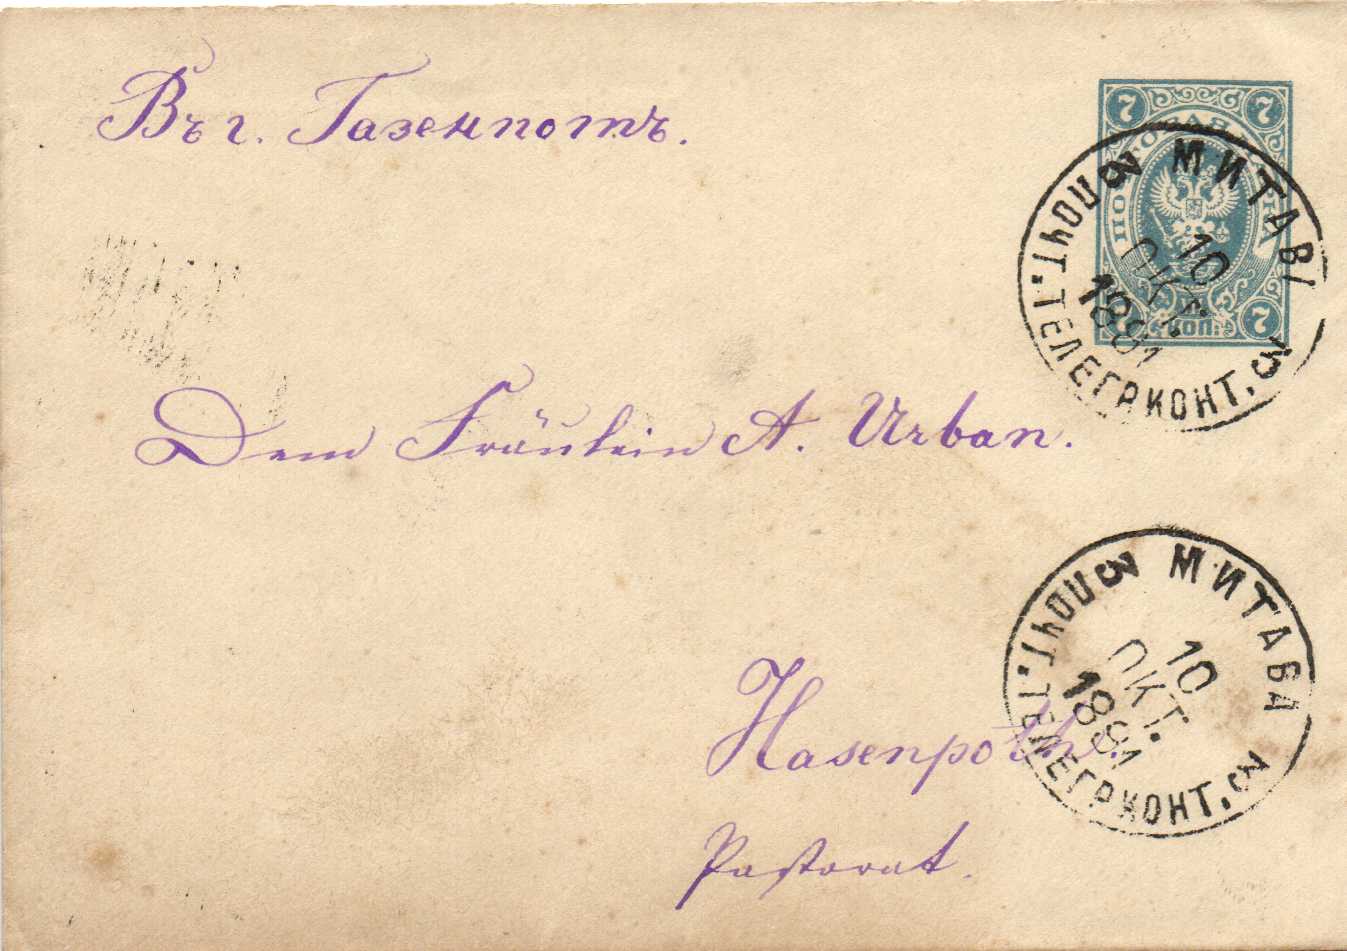 Въ г. Газенпотъ.
7 7
ПОЧТОВАЯ МАРКА
7 КОП. 7
МИТАВА
3 3
10
ОКТ.
1891
ПОЧТ. ТЕЛЕГР. КОНТ.
Dem Fräulein A. Urban.
МИТАВА
3 3
10
ОКТ.
1891
ПОЧТ. ТЕЛЕГР. КОНТ.
Hasenpoth.
Pastorat.